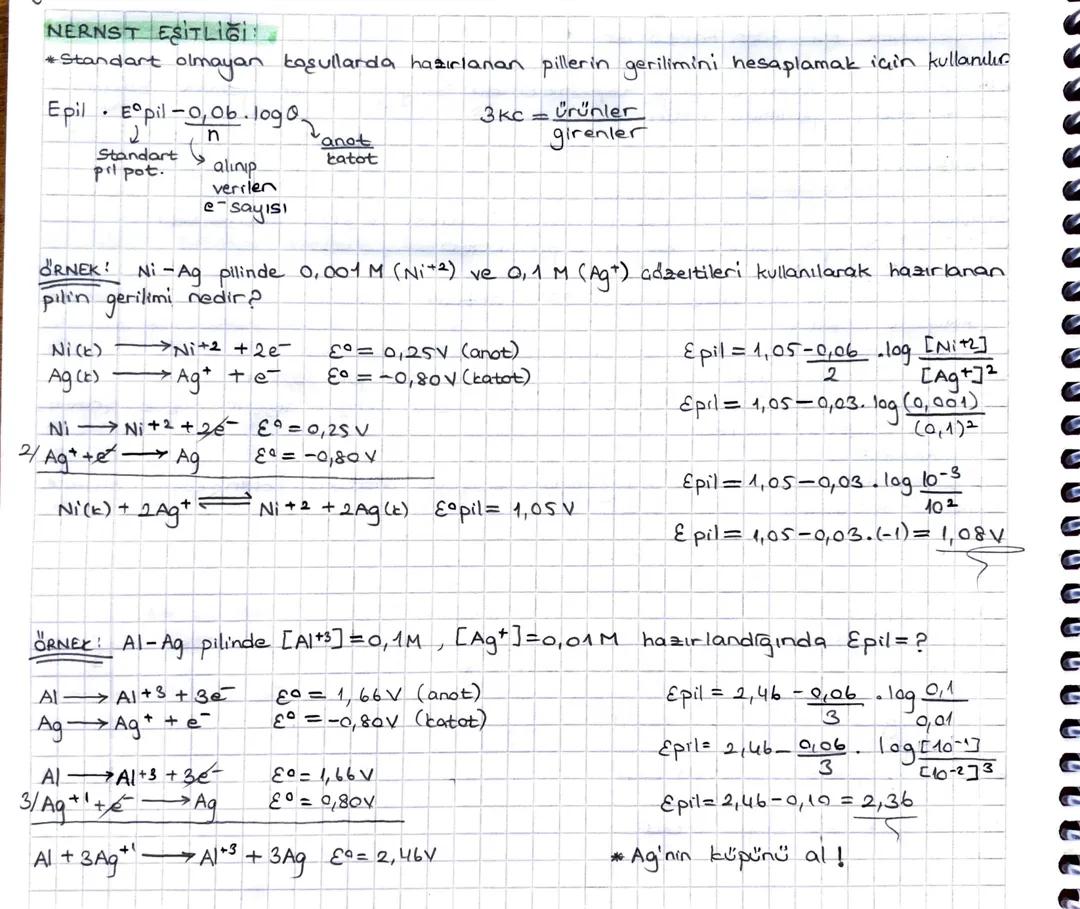 NERNST EŞİTLİĞİ:
*Standart olmayan koşullarda hazırlanan pillerin gerilimini hesaplamak için kullanılır
Epil . E°pil - 0,06 . logQ
n
anot
katot
Standart
pil pot.
alınıp
verilen
e- sayısı
3KC = ürünler
girenler
ÖRNEK: Ni-Ag pilinde 0,001 M (Ni+2) ve 0,1 M (Ag+) çözeltileri kullanılarak hazırlanan
pilin gerilimi nedir?
Ni(k) → Ni+2 + 2e- E° = 0,25V (anot)
Ag(k) → Ag+ + e- E° = -0,80V (katot)
Ni → Ni+2 + 2e- E° = 0,25 V
2/ Ag+ + e- → Ag E° = -0,80 V
Ni(k) + 2Ag+ ⇌ Ni+2 + 2Ag(k) E°pil = 1,05 V
Epil = 1,05 - 0,06 . log [Ni+2]
2 [Ag+]2
Epil = 1,05 - 0,03 . log (0,001)
(0,1)2
Epil = 1,05 - 0,03 . log 10-3
102
Epil = 1,05 - 0,03 . (-1) = 1,08V
ÖRNEK: Al-Ag pilinde [Al+3] = 0,1M , [Ag+] = 0,01M hazırlandığında Epil = ?
Al → Al+3 + 3e- E° = 1,66V (anot)
Ag → Ag+ + e- E° = -0,80V (katot)
Al → Al+3 + 3e- E° = 1,66V
3/ Ag+1 + e- → Ag E° = 0,80V
Al + 3Ag+1 → Al+3 + 3Ag E° = 2,46V
Epil = 2,46 - 0,06 . log 0,1
3 0,01
Epil = 2,46 - 0,06 . log [10-1]
3 [10-2]3
Epil = 2,46 - 0,10 = 2,36
* Ag'nin küpünü al !